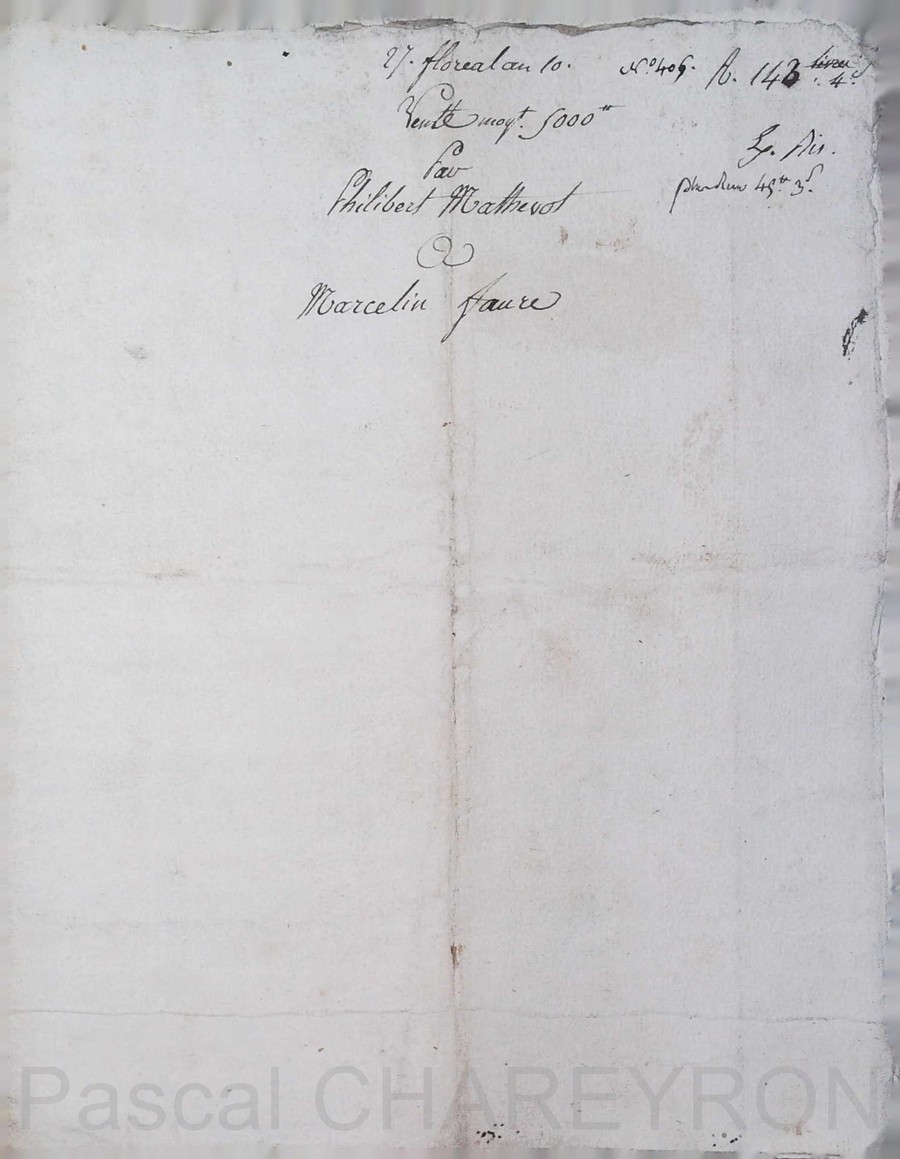 27. floreal an 10.
N.° 409.
R. 143
4.
Vente moyt. 5000 tt
Par
Philibert Mathevot
A
Marcelin faure
45 tt 3 s
Pascal CHAREYRON